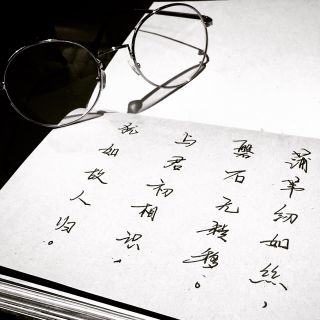 蒲苇纫如絲，
磐石无轉移。
与君初相识，
犹如故人归。